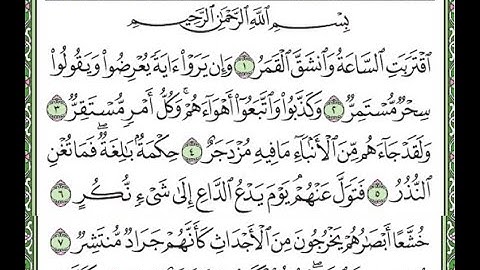 بِسْمِ اللَّهِ الرَّحْمَٰنِ الرَّحِيمِ
اقْتَرَبَتِ السَّاعَةُ وَانشَقَّ الْقَمَرُ ١ وَإِن يَرَوْا ءَايَةً يُعْرِضُوا وَيَقُولُوا
سِحْرٌ مُّسْتَمِرٌّ ٢ وَكَذَّبُوا وَاتَّبَعُوا أَهْوَاءَهُمْ ۚ وَكُلُّ أَمْرٍ مُّسْتَقِرٌّ ٣
وَلَقَدْ جَاءَهُم مِّنَ الْأَنبَاءِ مَا فِيهِ مُزْدَجَرٌ ٤ حِكْمَةٌ بَالِغَةٌ ۖ فَمَا تُغْنِ
النُّذُرُ ٥ فَتَوَلَّ عَنْهُمْ ۘ يَوْمَ يَدْعُ الدَّاعِ إِلَىٰ شَيْءٍ نُّكُرٍ ٦
خُشَّعًا أَبْصَارُهُمْ يَخْرُجُونَ مِنَ الْأَجْدَاثِ كَأَنَّهُمْ جَرَادٌ مُّنتَشِرٌ ٧